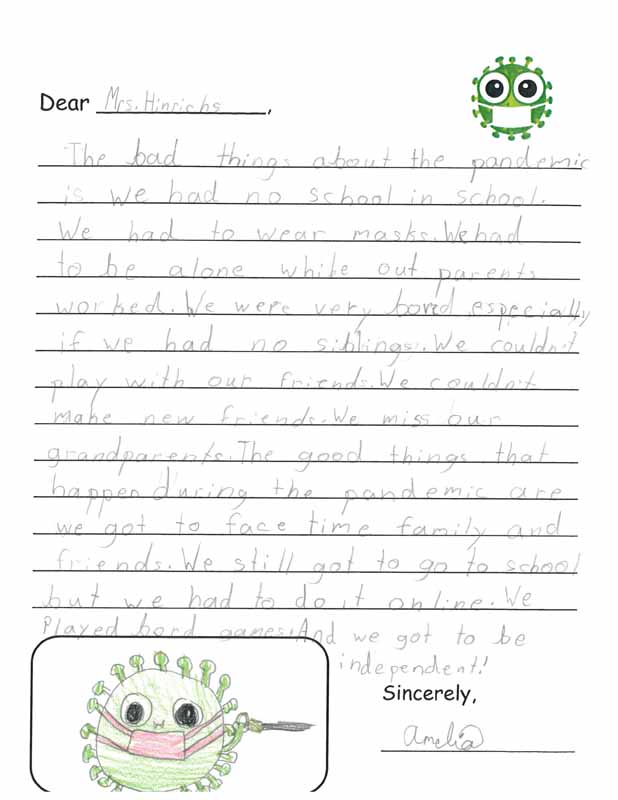 Dear Mrs. Hinrichs,
The bad things about the pandemic
is we had no school in school.
We had to wear masks. We had
to be alone while out parents
worked. We were very bored especially
if we had no siblings. We couldn't
play with our friends. We couldn't
make new friends. We miss our
grandparents. The good things that
happen during the pandemic are
we got to face time family and
friends. We still got to go to school
but we had to do it online. We
Played bord games. And we got to be
independent!
Sincerely,
Amelia